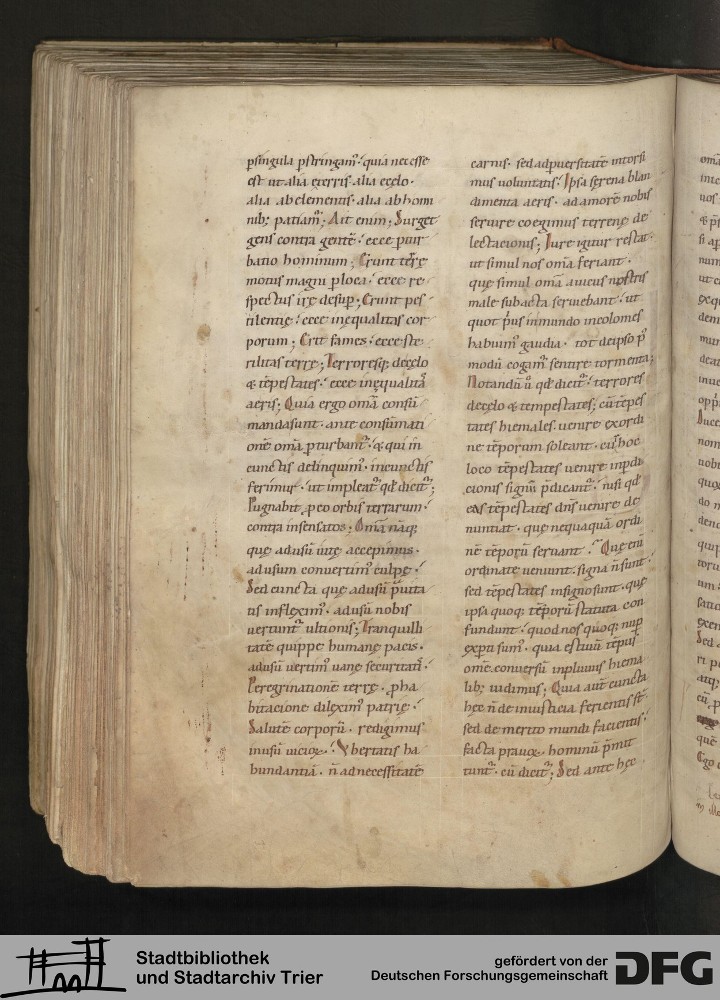 p singula pstringam᷒. quia necesse
est ut alia eterris. alia ęcęlo.
alia abelementis. alia abhomi
nib; patiam᷒; Ait enim; Surget
gens contra gentē. ecce ptur
batio hominum; Erunt terrę
motus magni ploca. ecce re
spectus irę desup; Erunt pes
tilentię. ecce inęqualitas cor
porum; Erit fames. ecce ste
rilitas terrę; Terroresq; decęlo
& tēpestates. ecce inęqualitas
aeris; Quia ergo omā consū
mandasunt. ante consūmati
onē omā pturbant᷒. & qui in
cunctis delinquim᷒. incunctis
ferimur. ut impleat᷒ qđ dicit᷒;
Pugnabit peo orbis terrarum
contra insensatos; Omā nāq;
quę adusū uitę accepimus.
adusum conuertim᷒ culpę.
Sed cuncta quę adusū praui
tis inflexim᷒. adusū nobis
uertunt᷒ ultionis; Tranquilli
tatē quippe humanę pacis.
adusū uertim᷒ uanę securitatis.
Peregrinationē terrę. pha
bitacione dilexim᷒ patrię.
Salutē corporū. redigimus
inusū uicioꝝ. Vbertatis ha
bundantiā. ñ adnecessitatē
carnis. sed adpuersitatē intorsi
mus uoluntatis. Ipsa serena blan
dimenta aeris. ad amorē nobis
seruire coegimus terrenę de
lectacionis; Iure igitur restat.
ut simul nos omā feriant.
quę simul omā uiciis nostris
male subacta seruiebant. ut
quot pius inmundo incolomes
habuim᷒ gaudia. tot deipso p
modū cogam᷒ sentire tormenta;
Notandū u qđ dicit᷒. terrores
decęlo & tempestates; cū tēpes
tates hiemales. uenire exordi
ne tēporum soleant. cur hoc
loco tēpestates uenire inpdi
cionis signū pdicant᷒. nisi qđ
eas tēpestates dn̄s uenire de
nuntiat. quę nequaquā ordi
nē tēporū seruant. Quę eni
ordinate ueniunt. signa ñ sunt.
sed tēpestates insigno sunt. quę
ipsa quoq; tēporū statuta con
fundunt. quod nos quoq; nup
expti sum᷒. quia estiuū tēpus
omē conuersū inpluuiis hiema
lib; uidimus; Quia autē cuncta
hęc ñ de iniusticia ferientis st̄.
sed de merito mundi facientis.
facta prauoꝝ. hominū pmit
tunt᷒. cū dicit᷒; Sed ante hęc
Stadtbibliothek
und Stadtarchiv Trier
gefördert von der
Deutschen Forschungsgemeinschaft
DFG